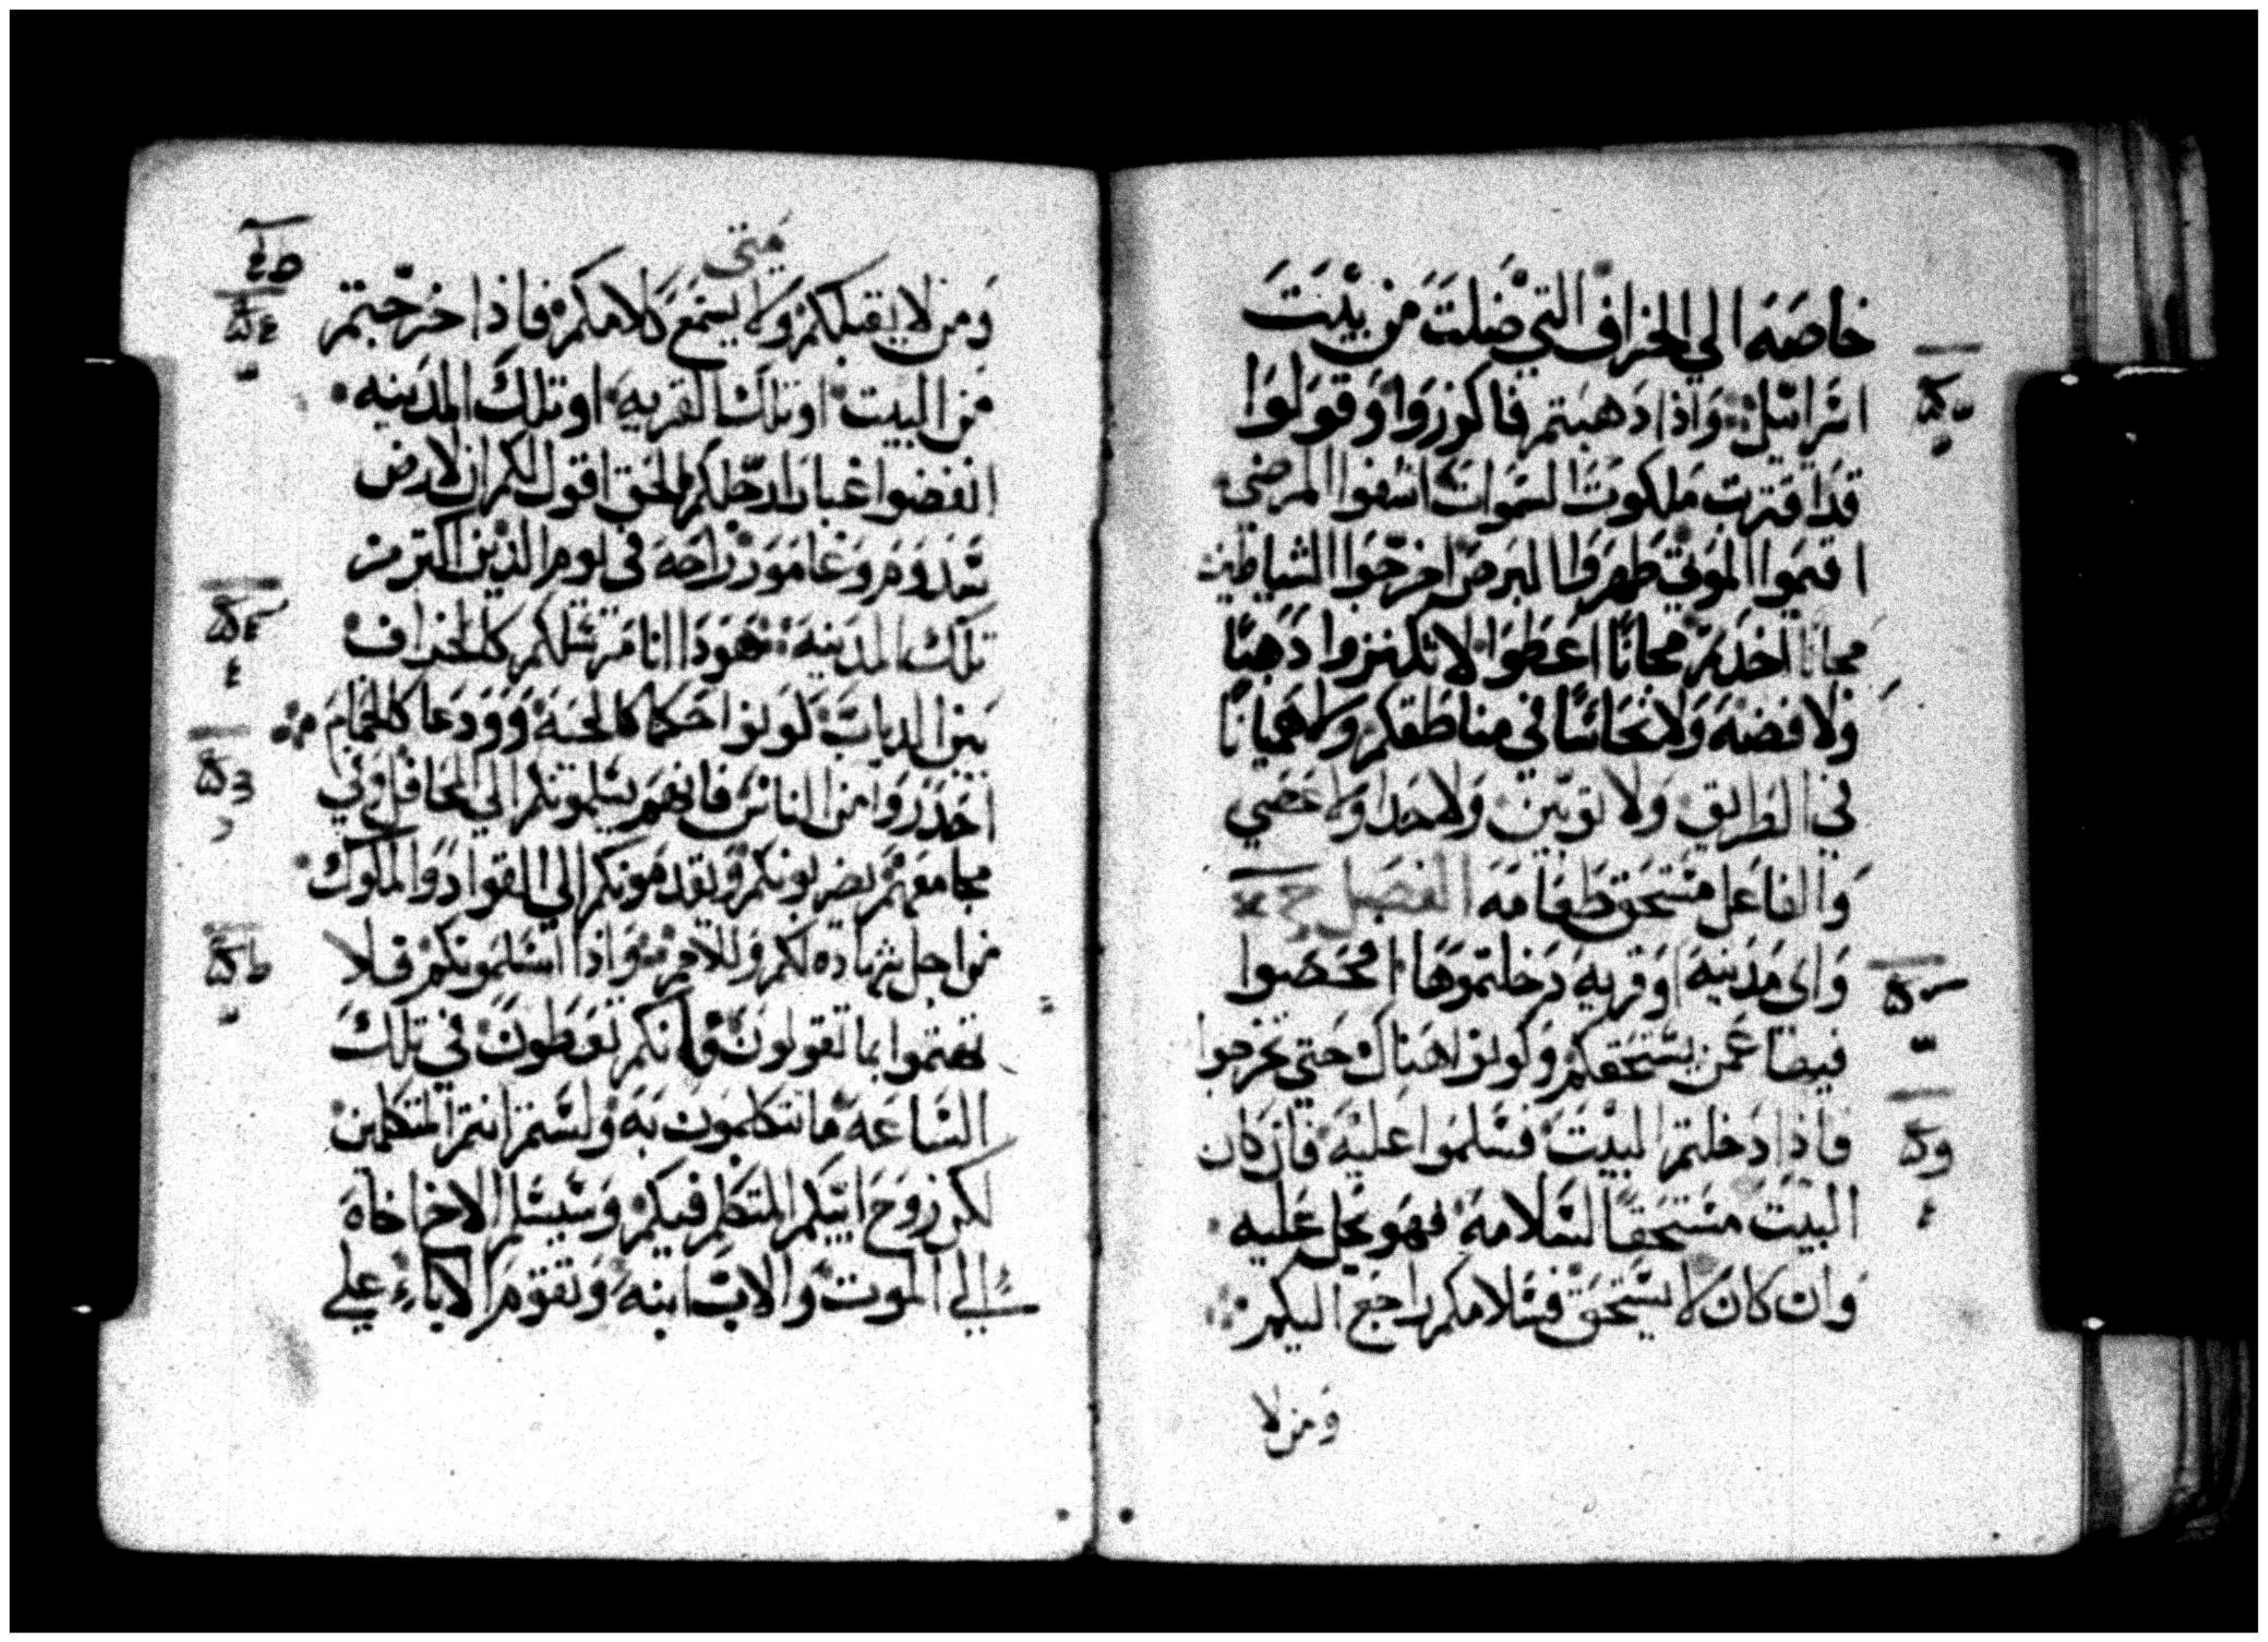 خاصه الي الخراف التي ضلت من بيت
اسرائيل واذا دهبتم فاكرزوا وقولوا
قد اقتربت ملكوت السموات اشفوا المرضي
اقيموا الموتي طهروا البرص اخرجوا الشياطين
مجانا اخدتم مجانا اعطوا لا تكنزوا دهبا
ولا فضه ولا نحاسا في مناطقكم ولا هميانا
في الطريق ولا توبين ولا حدا ولا عصي
والفاعل مستحق طعامه الفصل
واي مدينه او قريه دخلتموها افحصوا
فيها عمن يستحقكم وكونوا هناك حتي تخرجوا
فاذا دخلتم البيت فسلموا عليه فان كان
البيت مستحقا لسلامه فهو يحل عليه
وان كان لا يستحق فسلامكم راجع اليكم
ومن لا
متى
ومن لا يقبلكم ولا يسمع كلامكم فاذا خرجتم
من البيت او تلك القريه او تلك المدينه
انفضوا غبار ارجلكم الحق اقول لكم ان لارض
سدوم وغامور راحه في يوم الدين اكتر من
تلك المدينه هودا انا مرسلكم كالخراف
بين الدياب كونوا حكما كالحيه وودعا كالحمام
احدروا من الناس فانهم يسلمونكم الي المحافل وفي
مجامعهم يضربونكم ويقدمونكم الي القواد والملوك
من اجل شهاده لكم وللامم واذا اسلمونكم فلا
تهتموا بما تقولون فانكم تعطون في تلك
الساعه ما تتكلمون به ولستم انتم المتكلمين
لكن روح ابيكم المتكلم فيكم وسيسلم الاخ اخاه
الي الموت والاب ابنه وتقوم الاباء علي